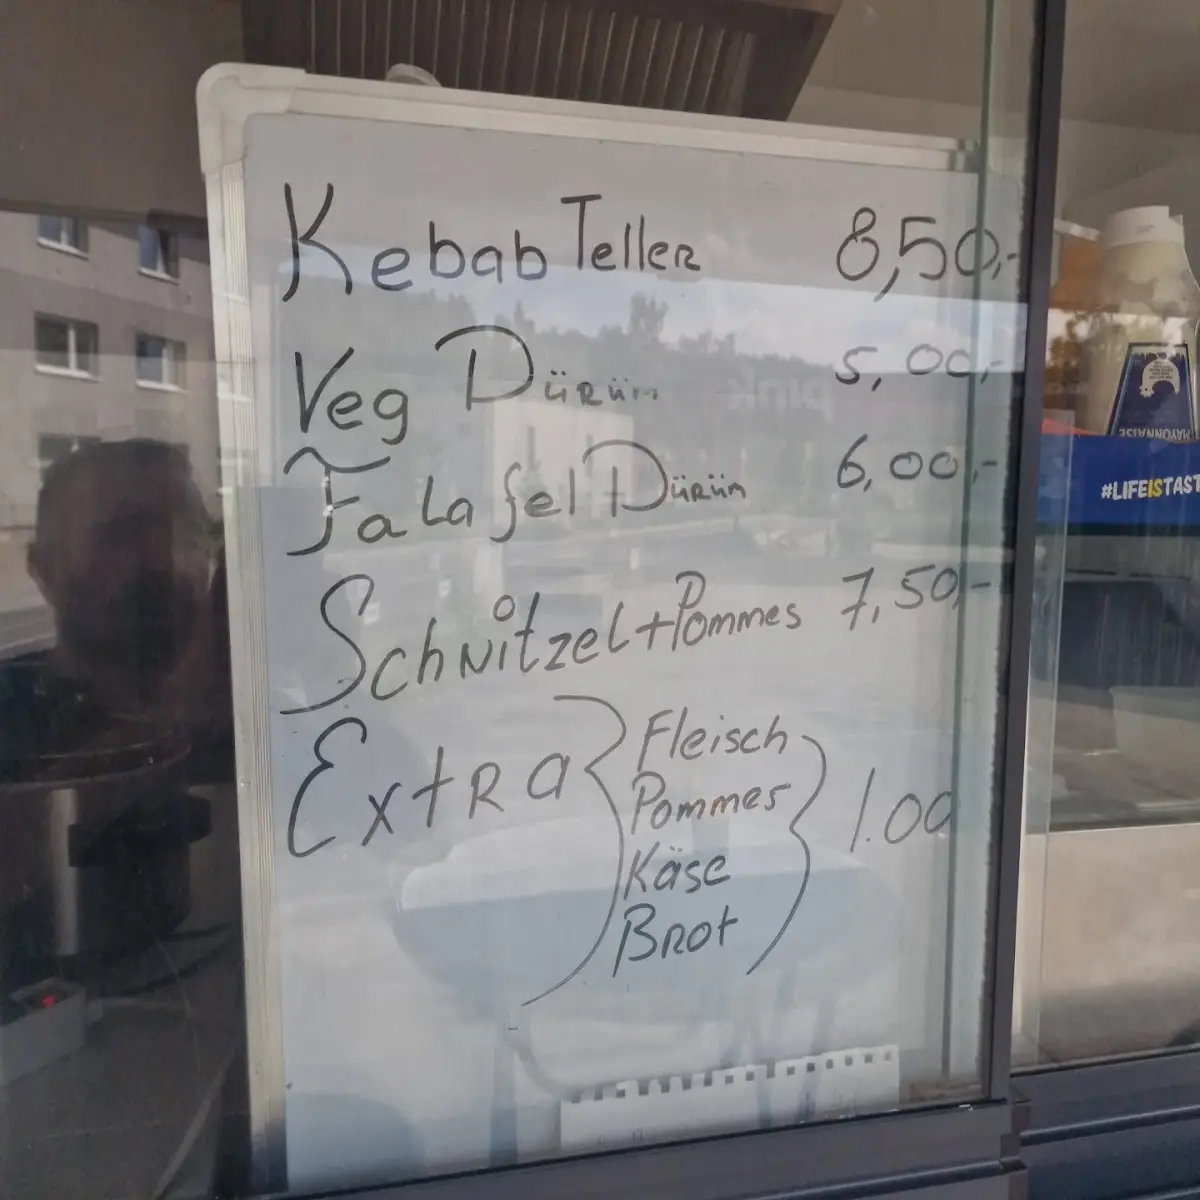 Kebab Teller 8,50,-
Veg Dürüm 5,00,-
Falafel Dürüm 6,00,-
Schnitzel+Pommes 7,50,-
Extra
Fleisch
Pommes
Käse
Brot
1.00
pink
MAYONNAISE
#LIFEISTAST